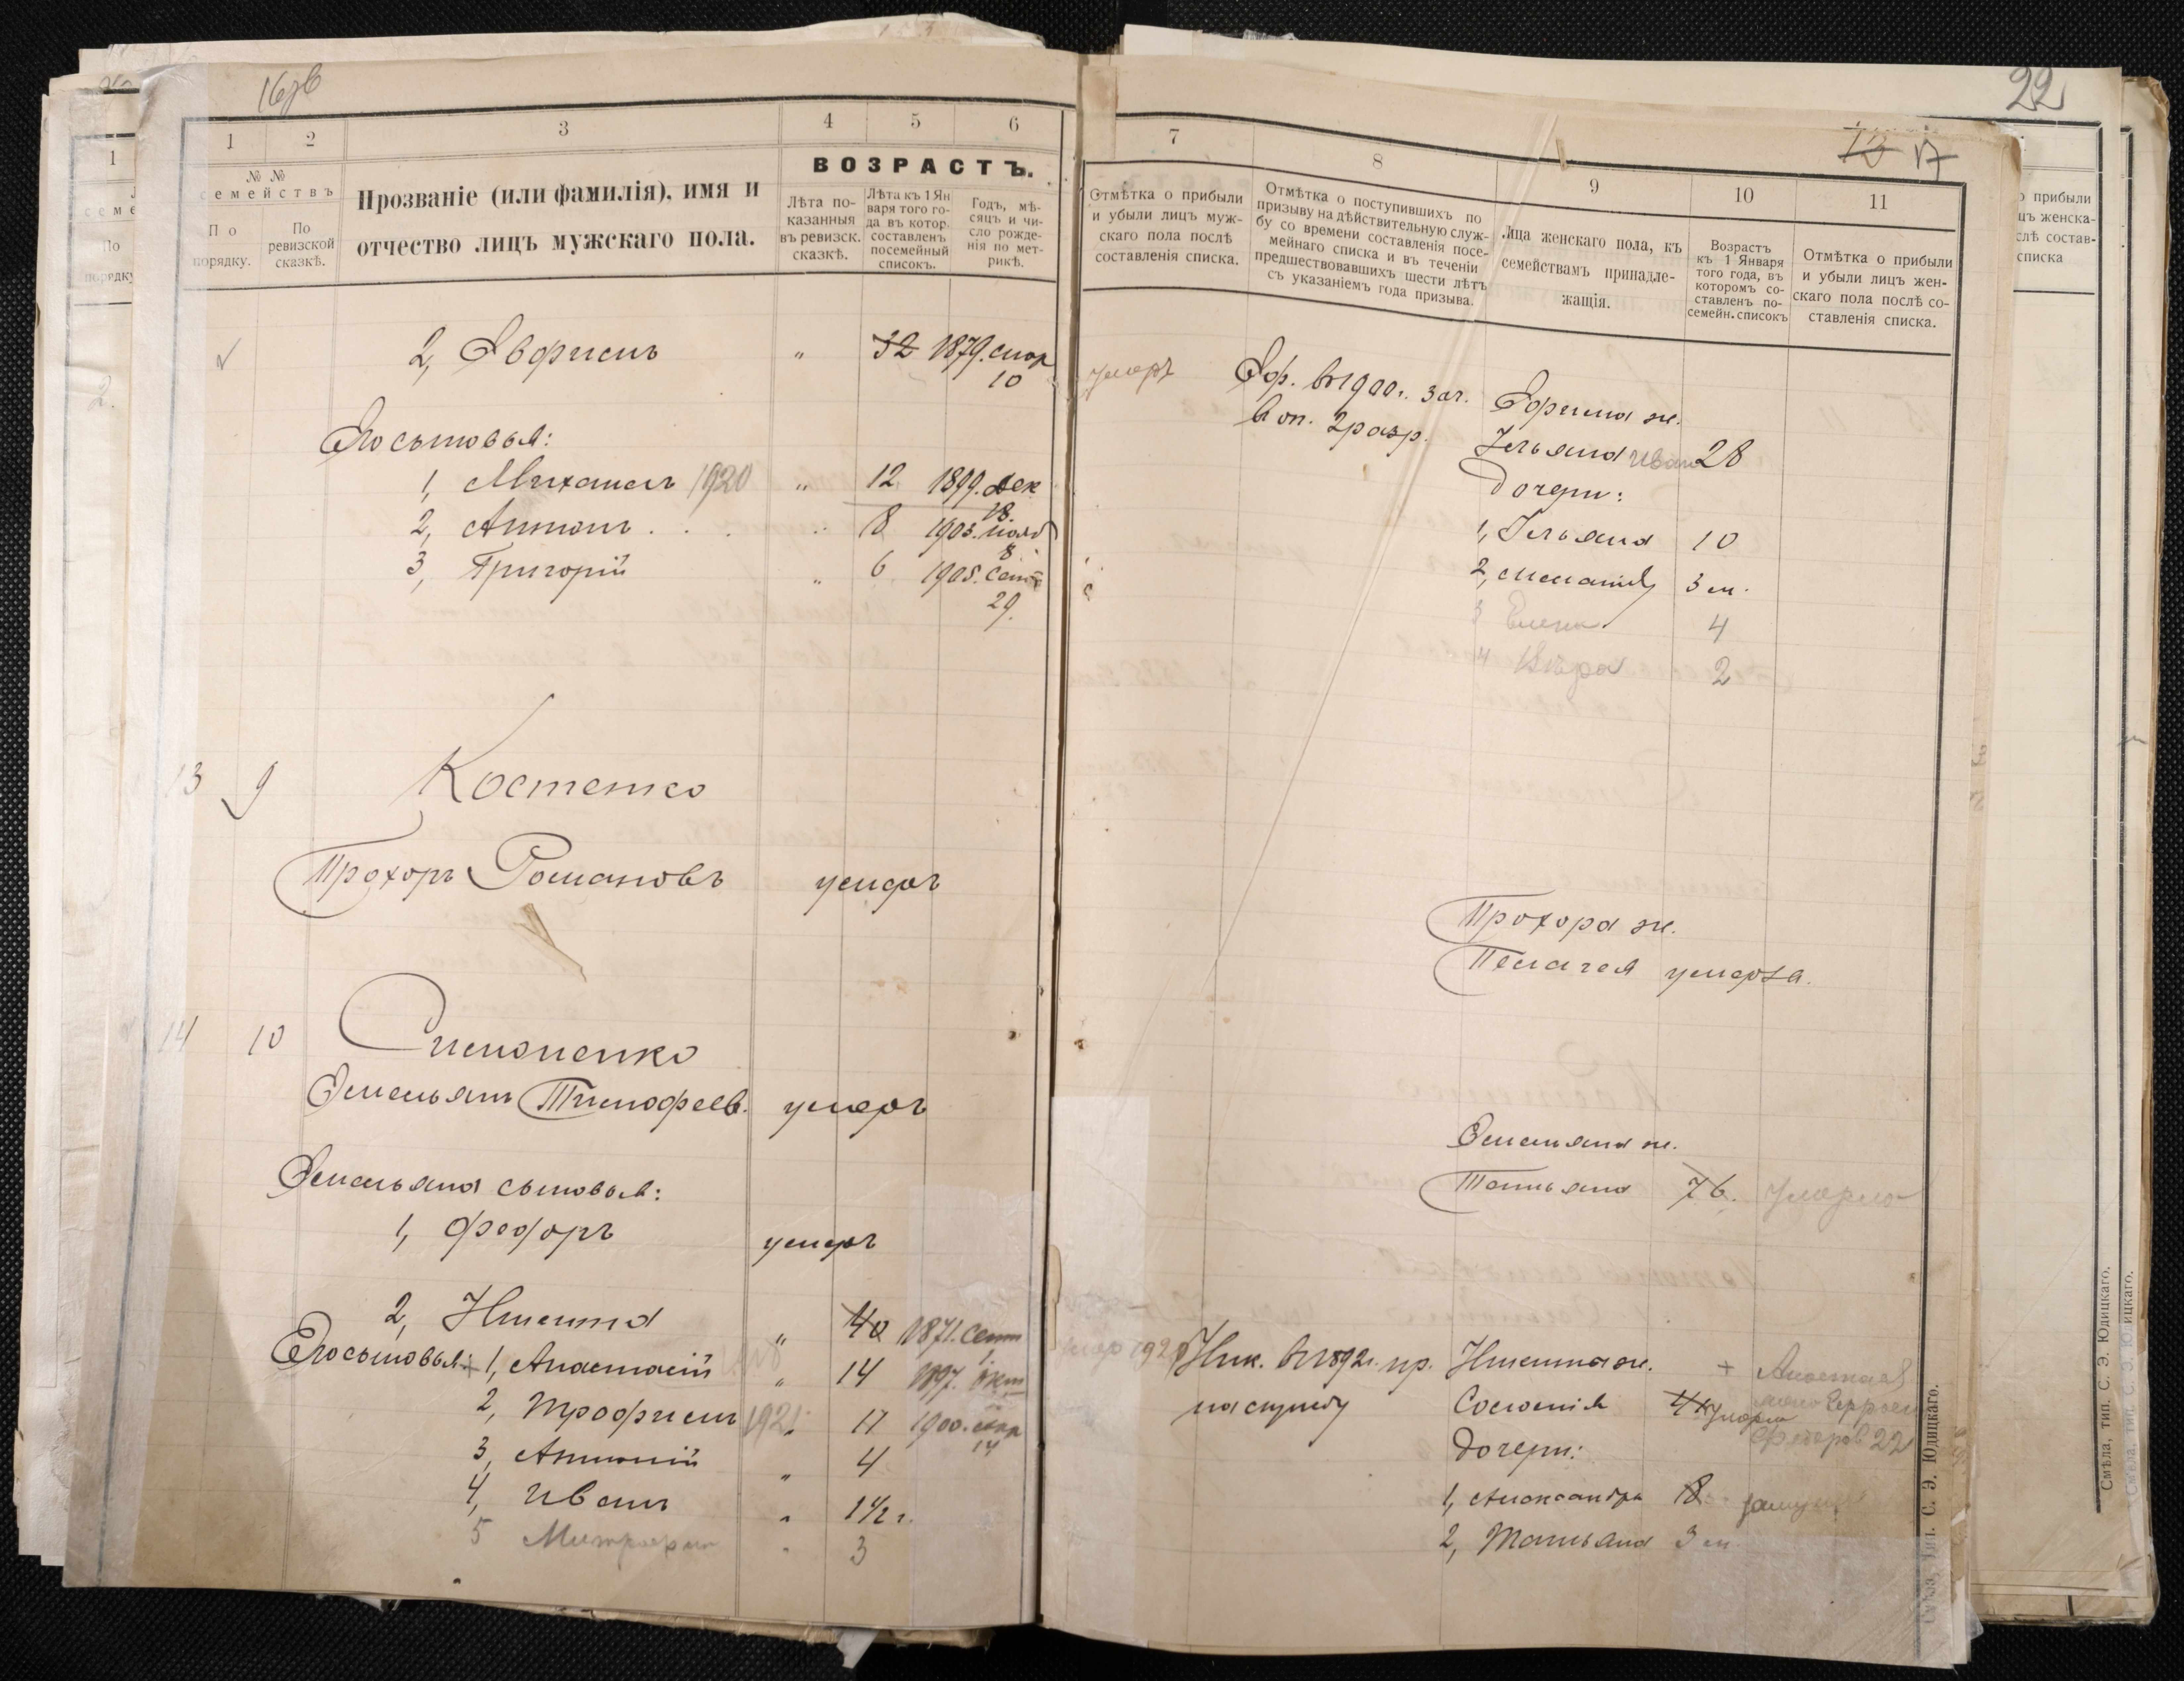 16зв
1
2
3
4
5
6
№ №
семействъ
По порядку.
По ревизской сказкѣ.
Прозваніе (или фамилія), имя и
отчество лицъ мужскаго пола.
ВОЗРАСТЪ.
Лѣта по-
казанныя
въ ревизск.
сказкѣ.
Лѣта къ 1 Ян
варя того го-
да въ котор.
составленъ
посемейный
списокъ.
Годъ, мѣ-
сяцъ и чи-
сло рожде-
нія по мет-
рикѣ.
2, Ефримъ " 32 1879.
10
Его сыновья:
1, Михаилъ 1920 " 12 1899. дек
18.
2, Антонъ . . . " 8 1903. нояб
8.
3, Григорій " 6 1905. сент
29.
13 9 Костенко
Прохоръ Романовъ умеръ
14 10 Симоненко
Емельянъ Тимофеев. умеръ
Емельяна сыновья:
1, Федоръ умеръ
2, Никита " 40 1871. сент
1.
Его сыновья: 1, Анастасій " 14 1897. окт
2, Трофимъ 1921 " 11 1900.
14
3, Антоній " 4
4, Иванъ " 1 1/2 г.
5 Митрофан " 3
22
13 17
7
8
9
10
11
Отмѣтка о прибыли
и убыли лицъ муж-
скаго пола послѣ
составленія списка.
Отмѣтка о поступившихъ по
призыву на дѣйствительную служ-
бу со времени составленія посе-
мейнаго списка и въ теченіи
предшествовавшихъ шести лѣтъ
съ указаніемъ года призыва.
Лица женскаго пола, къ
семействамъ принадле-
жащія.
Возрастъ
къ 1 Января
того года, въ
которомъ со-
ставленъ по-
семейн. списокъ
Отмѣтка о прибыли
и убыли лицъ жен-
скаго пола послѣ со-
ставленія списка.
умеръ Еф. въ 1900 г. зач. Ефрима ж.
в оп. 2 разр. Ульяна Иван 28
дочери:
1, Ульяна 10
2, Меланія 3 м.
3 Елена 4
4 Вѣра 2
Прохора ж.
Пелагея умерла.
Емельяна ж.
Татьяна 76. умерла
Ник. въ 1892 г. пр. Никиты ж. + Анастасія
на службу Соломія умерла
Федоров 22
дочери:
1, Александра 18
2, Татьяна 3 м.
Смѣла, тип. С. Э. Юдицкаго.
Смѣла, тип. С. Э. Юдицкаго.